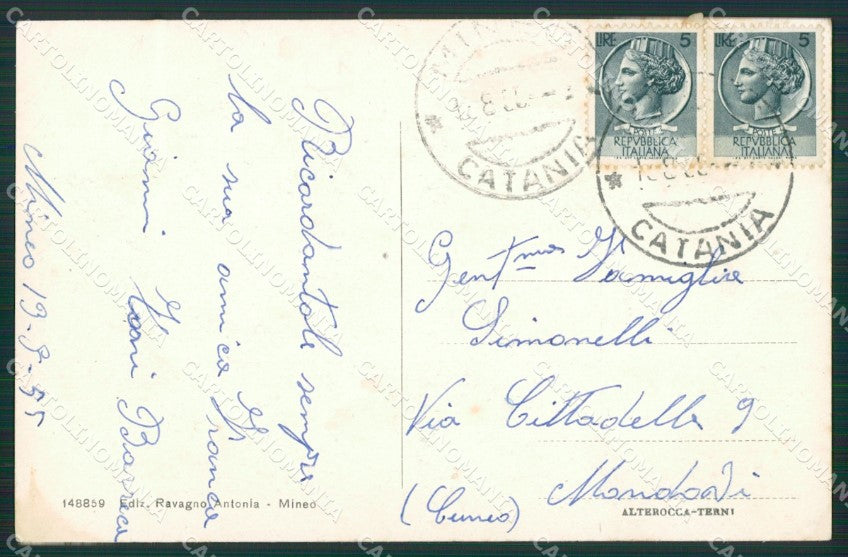 Ricordandole sempre
la sua amica Franca
Gianni
Mineo 19-8-55
148859 Ediz. Ravagno Antonia - Mineo
MINEO
CATANIA
CATANIA
LIRE 5
POSTE
REPVBBLICA
ITALIANA
LIRE 5
POSTE
REPVBBLICA
ITALIANA
Gent.ma Famiglia
Simonelli
Via Cittadella 9
Mondovì
(Cuneo)
ALTEROCCA-TERNI
CARTOLINOMANIA